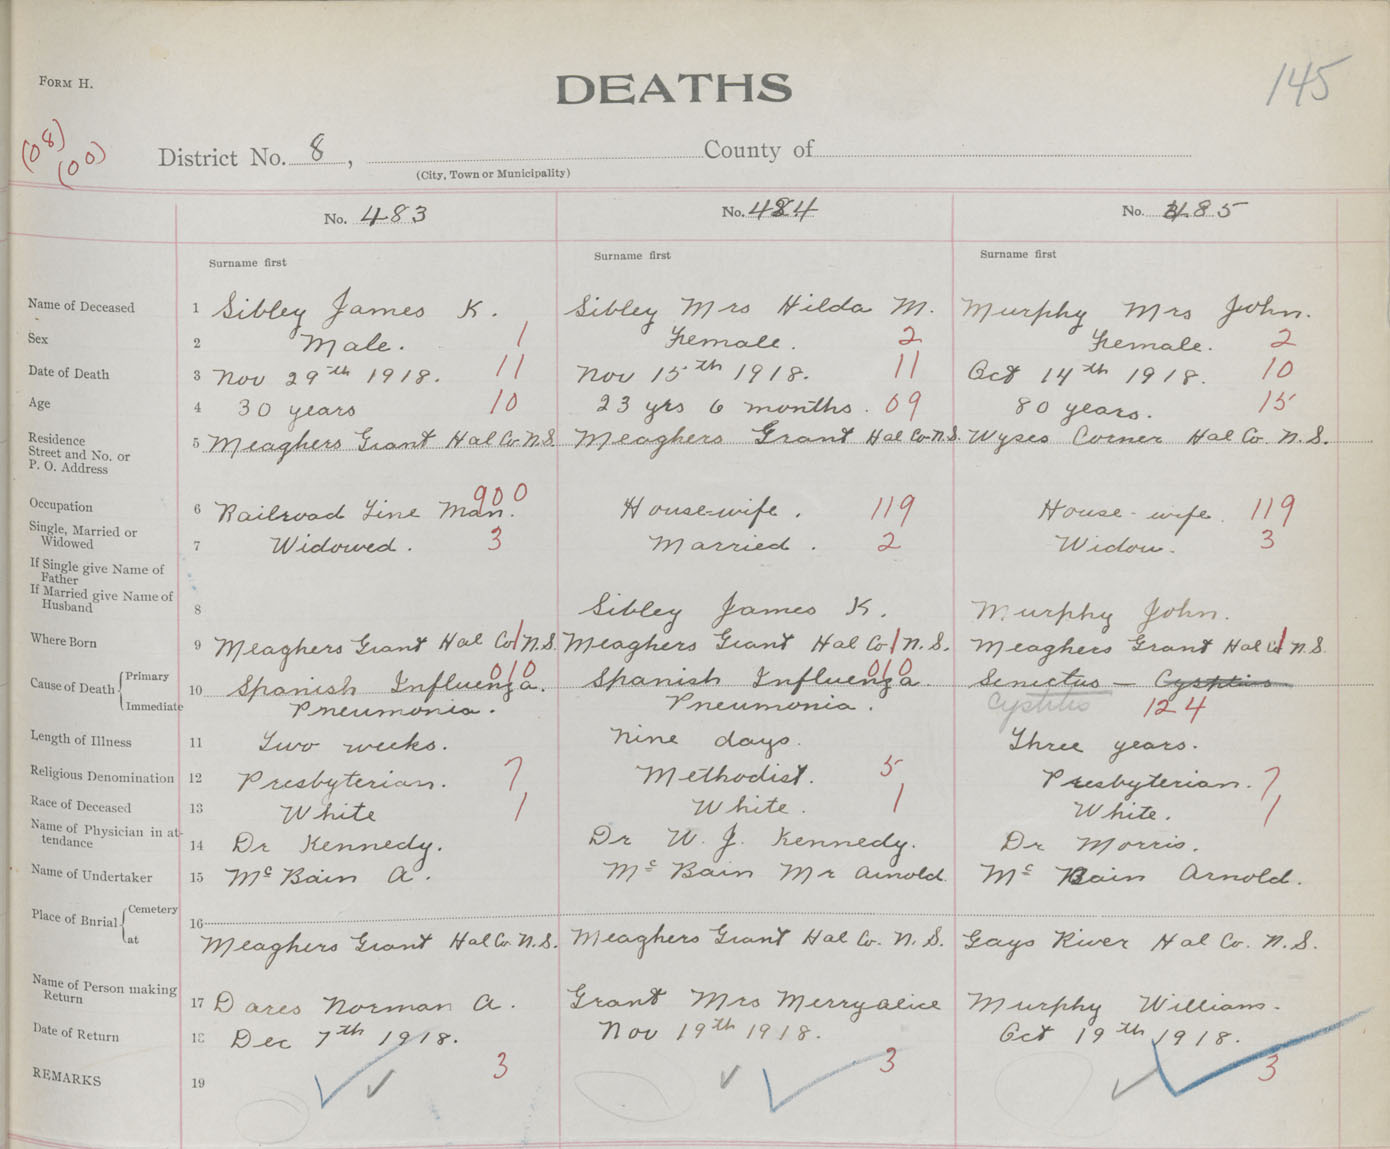 FORM H.
DEATHS
145
(08)
(00)
District No. 8, County of
(City, Town or Municipality)
No. 483 No. 484 No. 485
Surname first Surname first Surname first
Name of Deceased 1 Sibley James K. Sibley Mrs Hilda M. Murphy Mrs John.
Sex 2 Male. 1 Female. 2 Female. 2
Date of Death 3 Nov 29th 1918. 11 Nov 15th 1918. 11 Oct 14th 1918. 10
Age 4 30 years 10 23 yrs 6 months. 09 80 years. 15
Residence
Street and No. or
P. O. Address
5 Meaghers Grant Hal Co N.S. Meaghers Grant Hal Co N.S. Wyses Corner Hal Co. N.S.
900
Occupation 6 Railroad Line Man. House-wife. 119 House-wife. 119
Single, Married or
Widowed
7 Widowed. 3 Married. 2 Widow. 3
If Single give Name of
Father
If Married give Name of
Husband
8 Sibley James K. Murphy John.
Where Born 9 Meaghers Grant Hal Co 1 N.S. Meaghers Grant Hal Co 1 N.S. Meaghers Grant Hal Co 1 N.S.
010 010
Cause of Death Primary 10 Spanish Influenza. Spanish Influenza Senectus — Cystitis
Immediate Pneumonia. Pneumonia. Cystitis 124
Length of Illness 11 Two weeks. Nine days. Three years.
Religious Denomination 12 Presbyterian. 7 Methodist. 5 Presbyterian. 7
Race of Deceased 13 White 1 White. 1 White. 1
Name of Physician in at-
tendance
14 Dr Kennedy. Dr W. J. Kennedy. Dr Morris.
Name of Undertaker 15 Mc Bain A. Mc Bain Mr Arnold. Mc Bain Arnold.
Place of Burial Cemetery 16
at Meaghers Grant Hal Co. N.S. Meaghers Grant Hal Co. N.S. Gays River Hal Co. N.S.
Name of Person making
Return
17 Dares Norman A. Grant Mrs Merryalice Murphy William.
Date of Return 18 Dec 7th 1918. Nov 19th 1918. Oct 19th 1918.
3 3 3
REMARKS 19